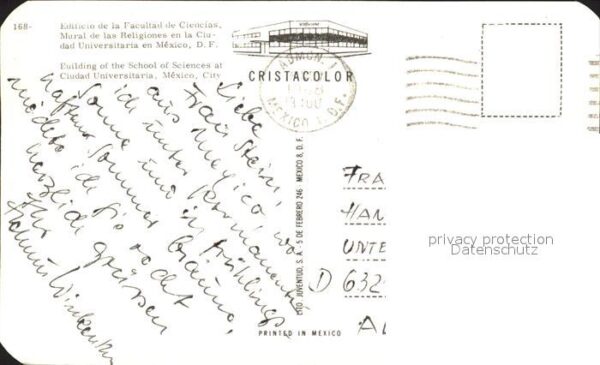 168- Edificio de la Facultad de Ciencias,
Mural de las Religiones en la Ciu-
dad Universitaria en México, D. F.
Building of the School of Sciences at
Ciudad Universitaria, México, City
CRISTACOLOR
ADMON. 1
MEXICO 1, D.F.
Liebe
Frau Steini,
aus Mexico wo
ich unter permanenter
Sonne und in frühlings
haftem Sommer
möcte ich Sie recht
herzlich grüssen
Ihr
LITO JUVENTUD, S. A. - 5 DE FEBRERO 246 - MEXICO 8, D. F.
PRINTED IN MEXICO
FRA
HAN
UNTE
D 632
AL
privacy protection
Datenschutz